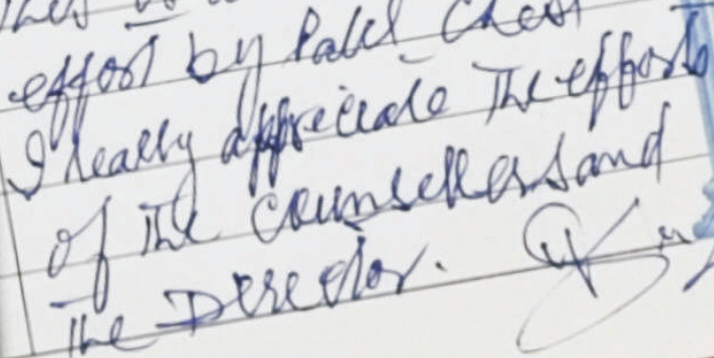 effort by
I really appreciate The efforts
of The Counsellers and
The Derector.